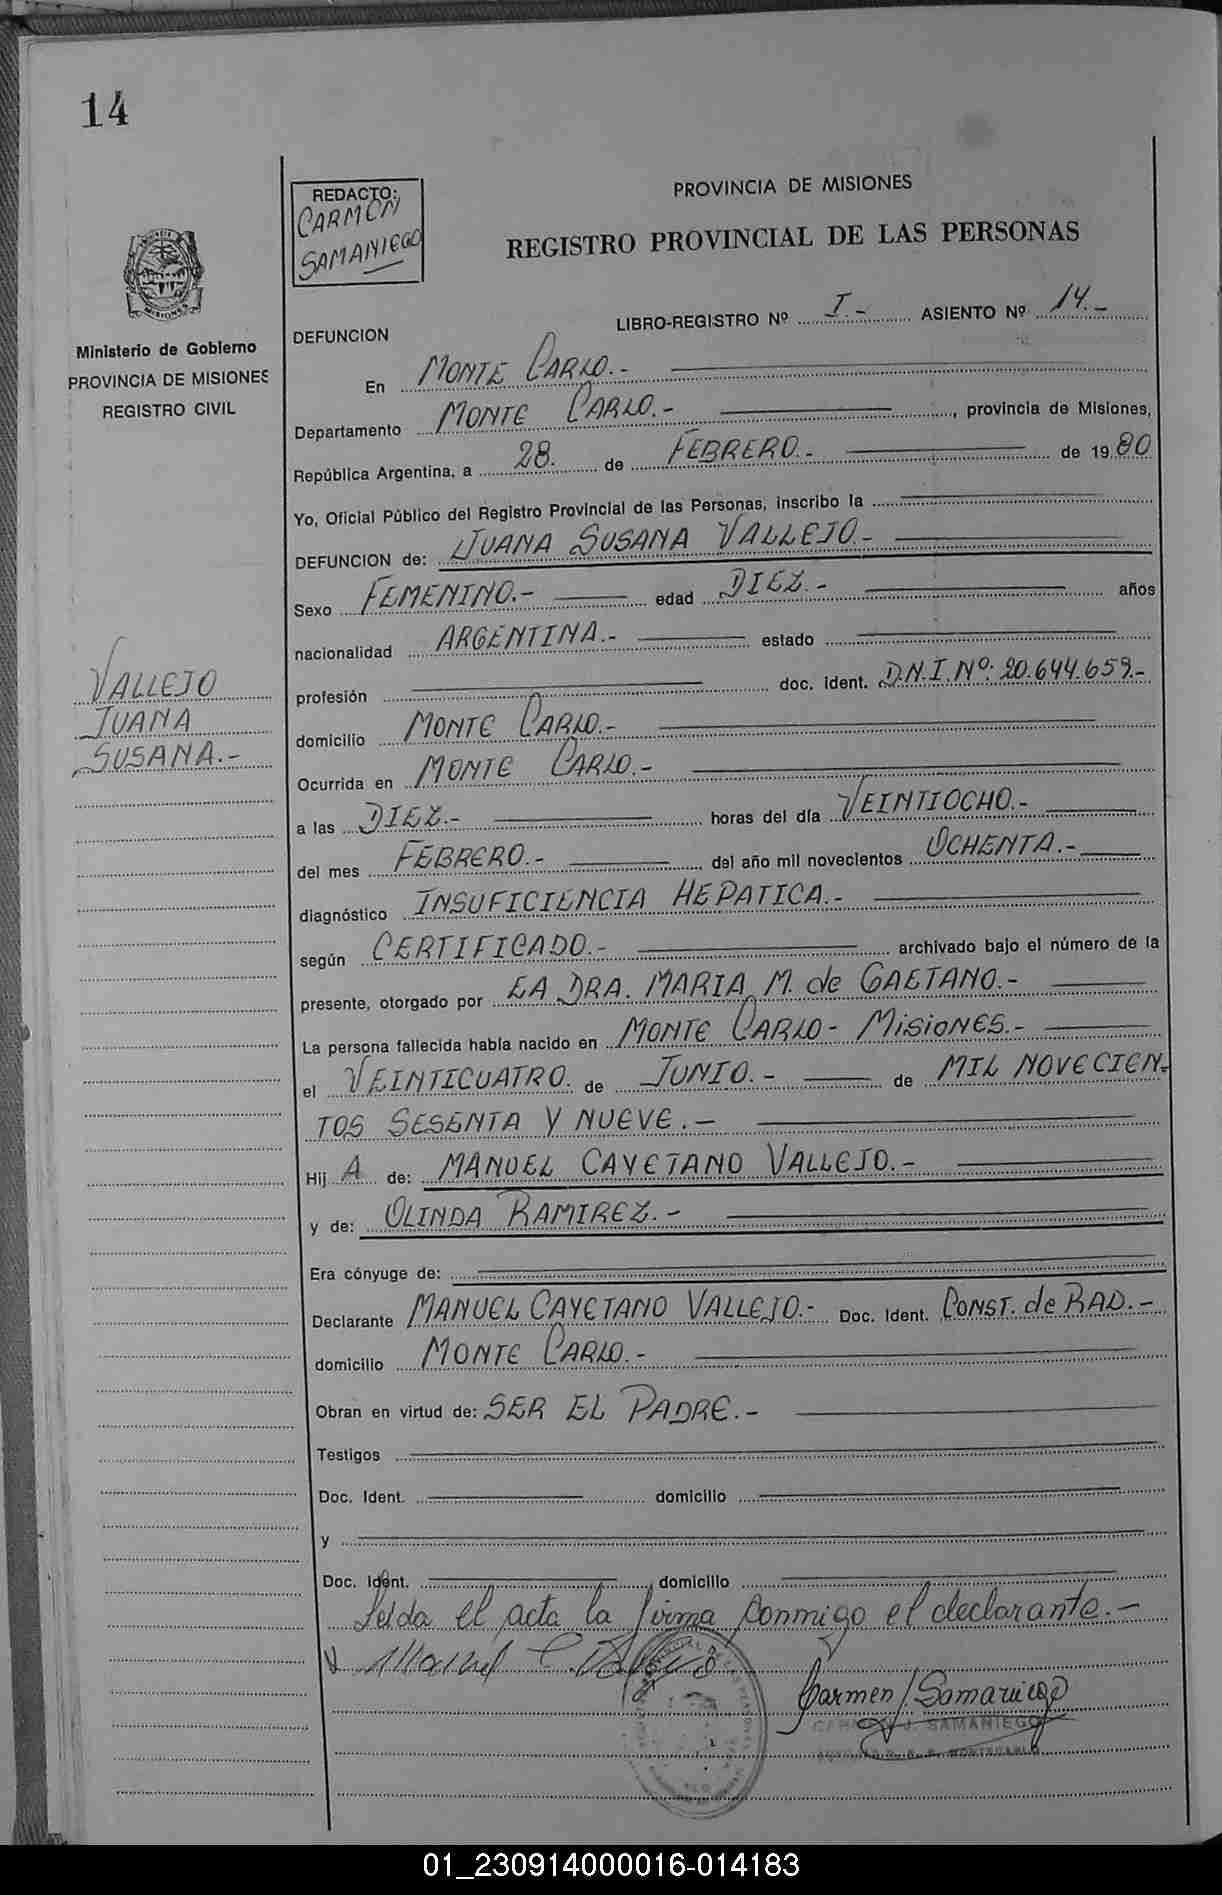 14
REDACTO:
CARMEN
SAMANIEGO
PROVINCIA DE MISIONES
REGISTRO PROVINCIAL DE LAS PERSONAS
MISIONES
Ministerio de Gobierno
PROVINCIA DE MISIONES
REGISTRO CIVIL
LIBRO-REGISTRO Nº I.- ASIENTO Nº 14.-
DEFUNCION
En MONTE CARLO.-
Departamento MONTE CARLO.- , provincia de Misiones,
República Argentina, a 28. de FEBRERO.- de 1980
Yo, Oficial Público del Registro Provincial de las Personas, inscribo la
DEFUNCION de: JUANA SUSANA VALLEJO.-
Sexo FEMENINO.- edad DIEZ.- años
nacionalidad ARGENTINA.- estado
VALLEJO
JUANA
SUSANA.-
profesión doc. ident. D.N.I. Nº: 20.644.659.-
domicilio MONTE CARLO.-
Ocurrida en MONTE CARLO.-
a las DIEZ.- horas del día VEINTIOCHO.-
del mes FEBRERO.- del año mil novecientos OCHENTA.-
diagnóstico INSUFICIENCIA HEPATICA.-
según CERTIFICADO.- archivado bajo el número de la
presente, otorgado por LA DRA. MARIA M. de GAETANO.-
La persona fallecida había nacido en MONTE CARLO - MISIONES.-
el VEINTICUATRO. de JUNIO.- de MIL NOVECIEN-
TOS SESENTA Y NUEVE.-
Hij A de: MANUEL CAYETANO VALLEJO.-
y de: OLINDA RAMIREZ.-
Era cónyuge de:
Declarante MANUEL CAYETANO VALLEJO.- Doc. Ident. CONST. de RAD.-
domicilio MONTE CARLO.-
Obran en virtud de: SER EL PADRE.-
Testigos
Doc. Ident. domicilio
y
Doc. Ident. domicilio
Leida el acta la firma conmigo el declarante.-
Manuel C. Vallejo
Carmen J. Samaniego
J. SAMANIEGO
MONTECARLO
01_230914000016-014183